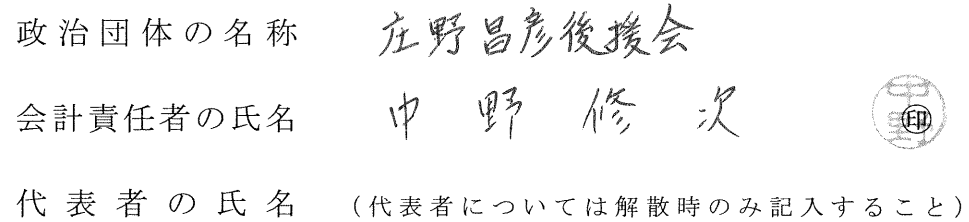 政治団体の名称 庄野昌彦後援会
会計責任者の氏名 中野修次 中野 ㊞
代表者の氏名 (代表者については解散時のみ記入すること)